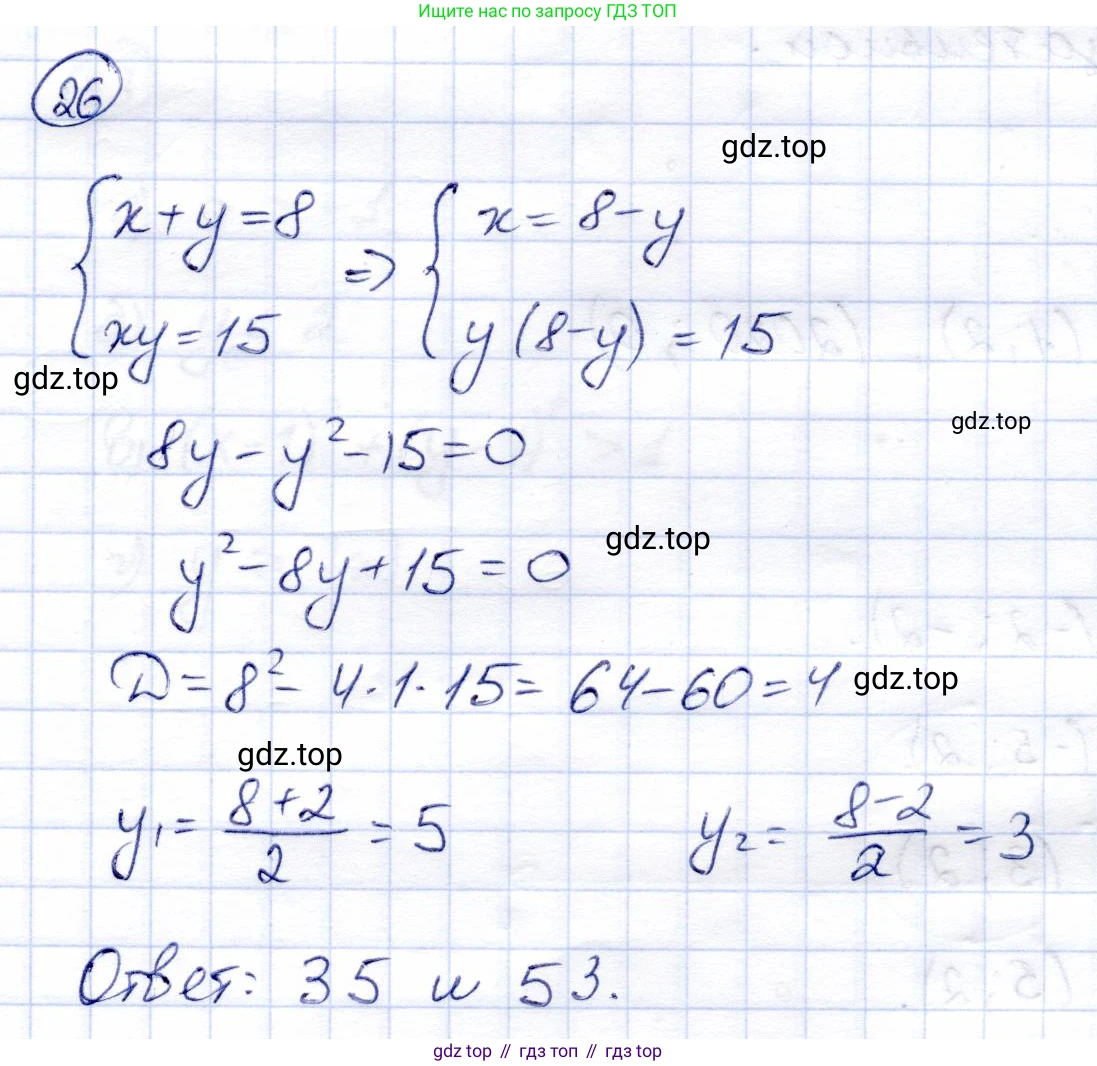 Ищите нас по запросу ГДЗ ТОП
26
gdz.top
{ x + y = 8 => { x = 8 - y
xy = 15 y (8 - y) = 15
gdz.top
gdz.top
8y - y² - 15 = 0
gdz.top
y² - 8y + 15 = 0
D = 8² - 4·1·15 = 64 - 60 = 4
gdz.top
gdz.top
y₁ = (8 + 2)/2 = 5 y₂ = (8 - 2)/2 = 3
Ответ: 35 и 53.
gdz top // гдз топ // gdz top